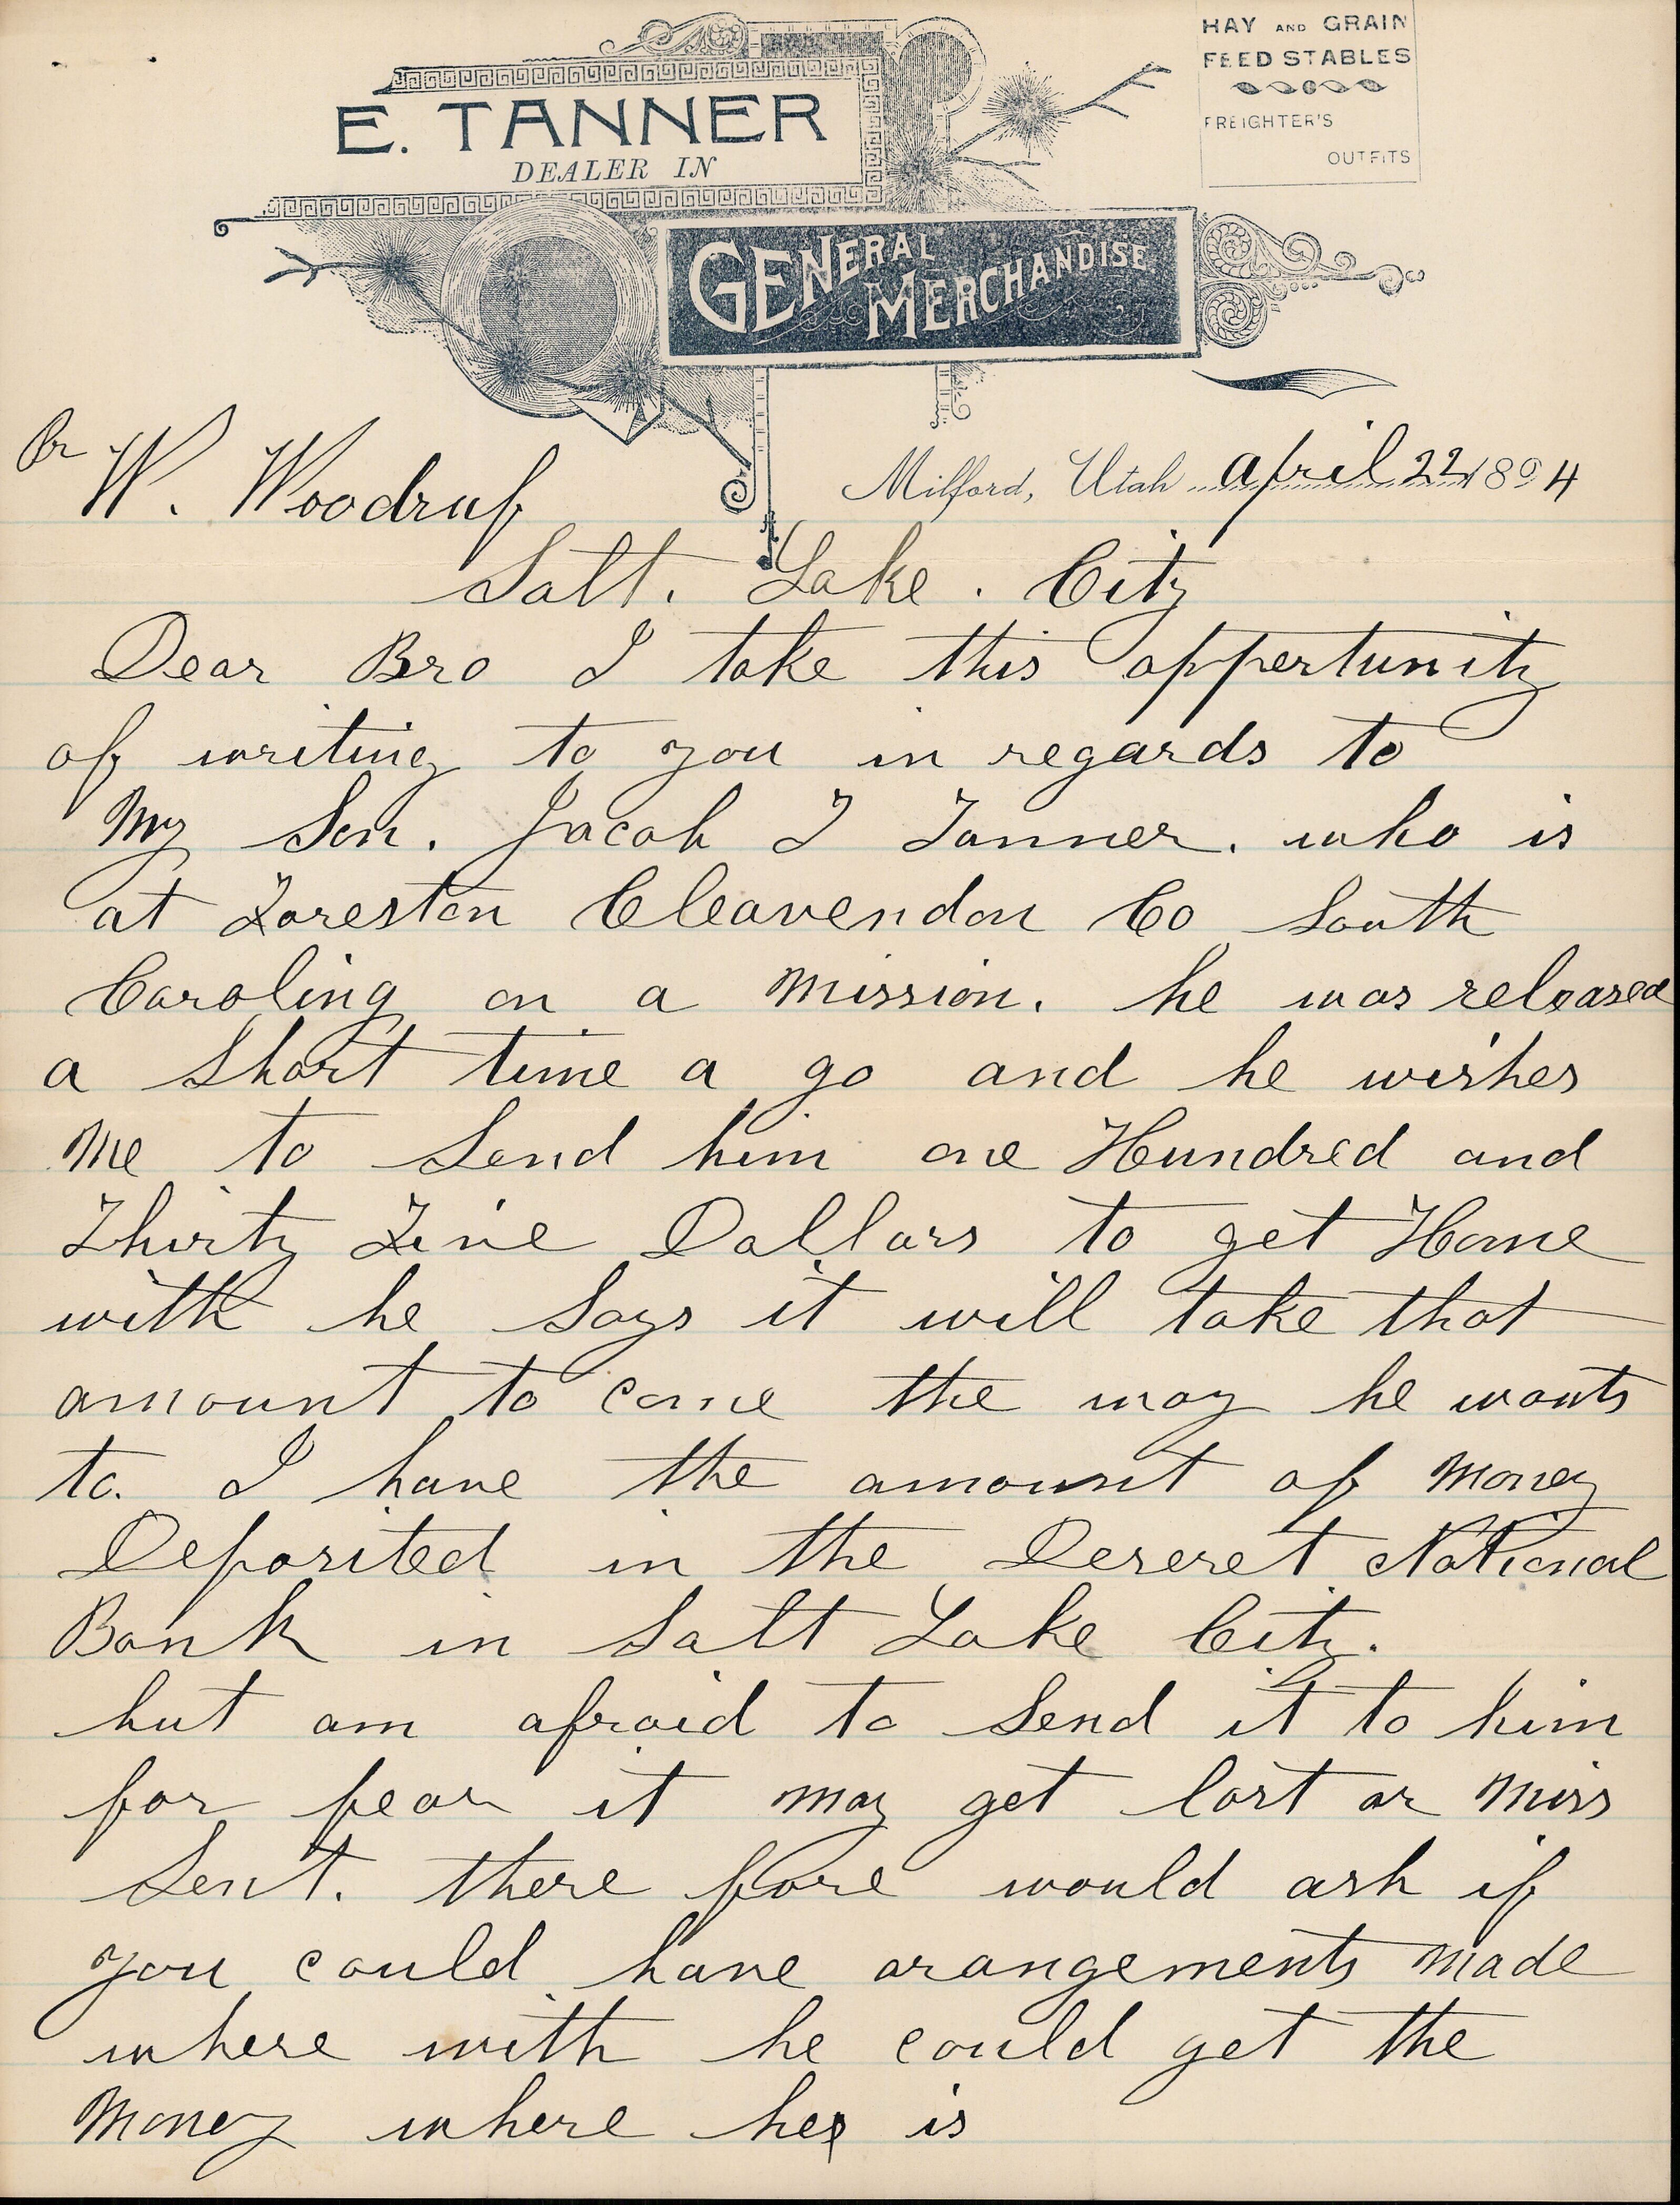 HAY AND GRAIN
FEED STABLES
FREIGHTER'S
OUTFITS
E. TANNER
DEALER IN
GENERAL
MERCHANDISE
Br W. Woodruf
Milford, Utah April 22 1894
Salt. Lake. City
Dear Bro I take this oppertunity
of writing to you in regards to
My Son. Jacob T Tanner. who is
at Foreston Cleavendon Co South
Caroling on a Mission. he was released
a Short time a go and he wishes
Me to Send him one Hundred and
Thirty Five Dollars to get Home
with he Says it will take that
amount to come the way he wants
to. I have the amount of Money
Deposited in the Deseret National
Bank in Salt Lake City.
but am afraid to Send it to him
for fear it may get lost or Miss
Sent. there fore would ask if
you could have arangements Made
where with he could get the
Money where he is